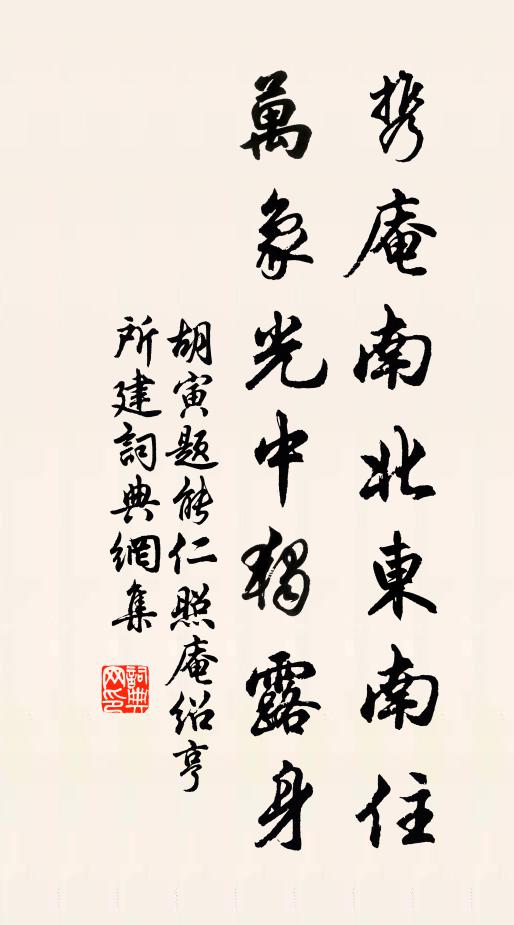 携庵南北東南住
萬象光中獨露身
胡寅題能仁照庵紹亨
所建詞典網集
詞典
网印